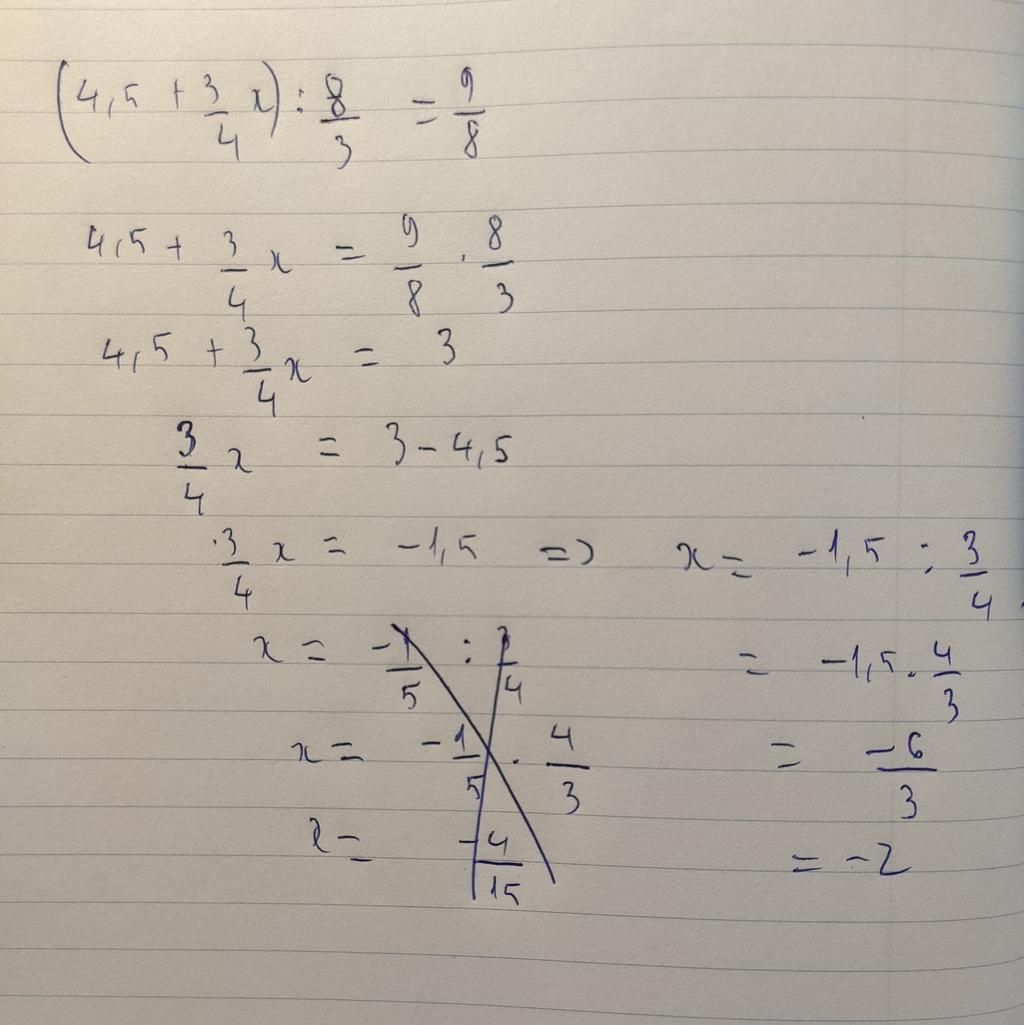 (4,5 + 3/4 x) : 8/3 = 9/8
4,5 + 3/4 x = 9/8 . 8/3
4,5 + 3/4 x = 3
3/4 x = 3 - 4,5
.3/4 x = -1,5 => x = -1,5 : 3/4
x = -1/5 : 3/4 = -1,5 . 4/3
x = -1/5 . 4/3 = -6/3
x = -4/15 = -2